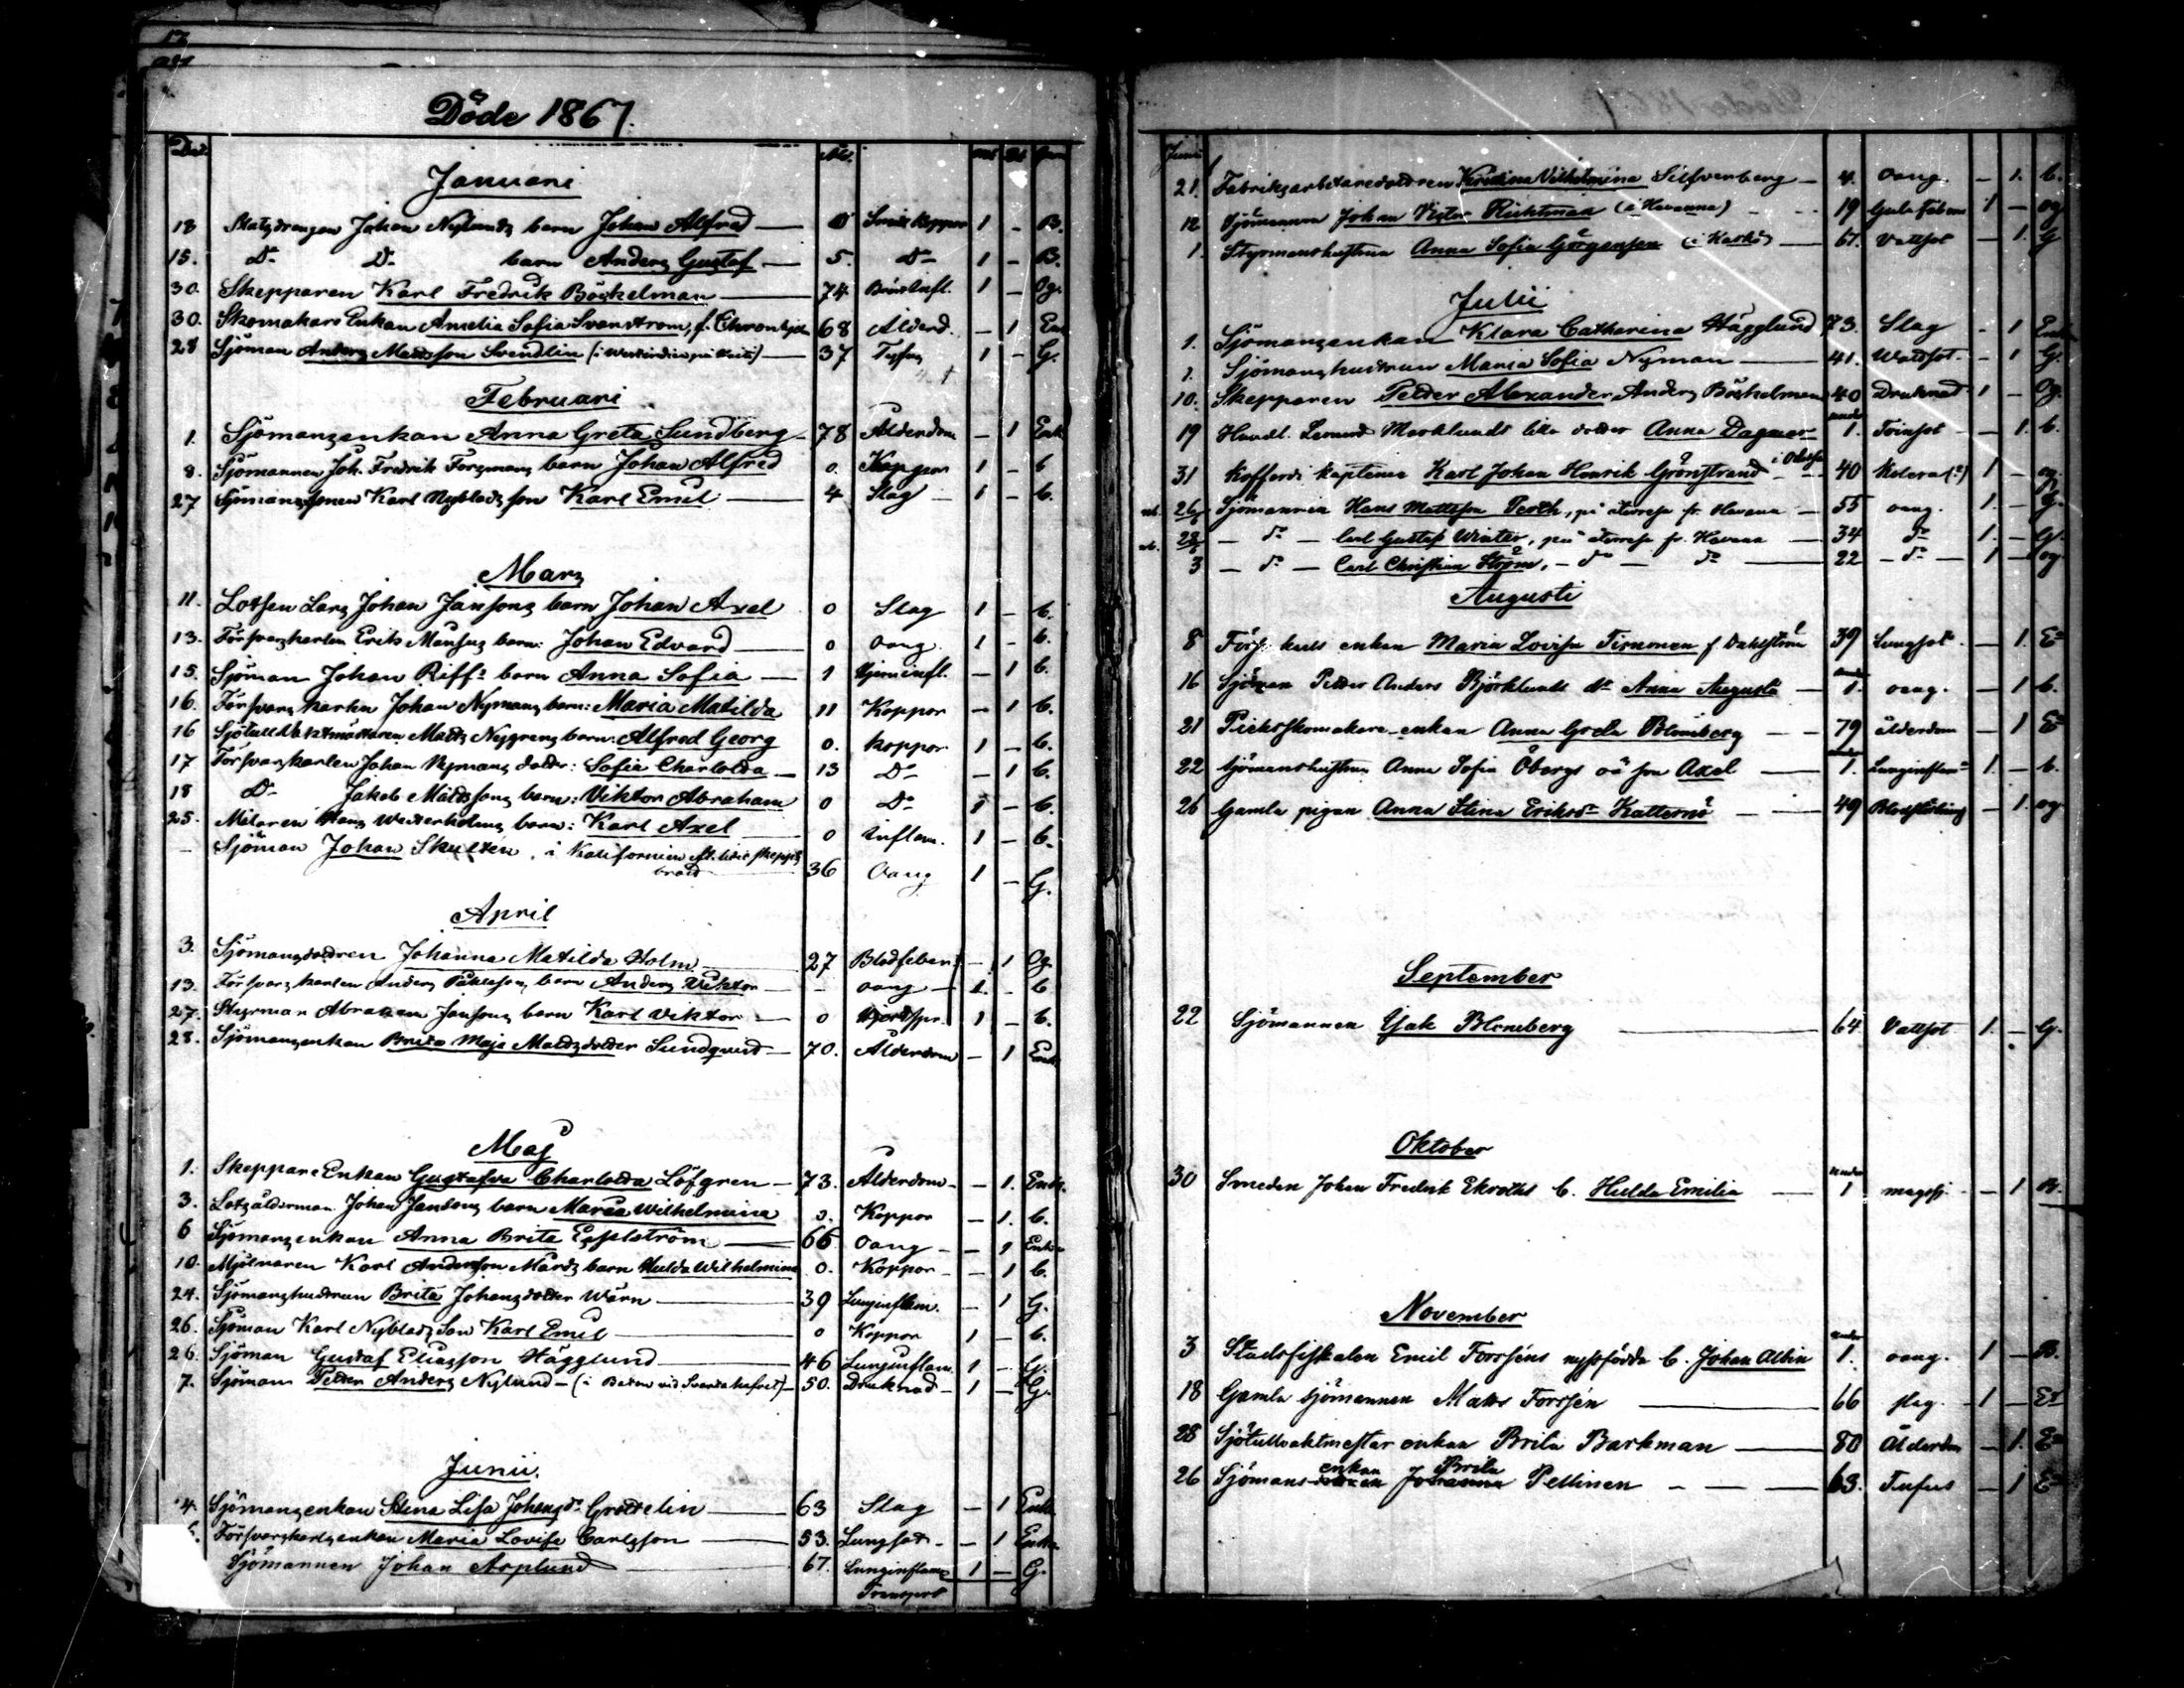 Döde 1867.
Dat. Åld. mk qk
Januari
13 Statsdrengen Johan Nylunds barn Johan Alfred — 0 Smitt koppor 1 - B.
15. Do Do barn Anders Gustaf — 5. Do 1 - B.
30. Skepparen Karl Fredrik Böckelman — 74 Bröstinfl. 1 - Og.
30. Skomakare Enkan Amelia Sofia Svanström, f. 68 Ålderd. - 1 Enk
28 Sjöman Anders Mattsson Svendlin 37 1 - G.
Februari
1. Sjömansenkan Anna Greta Sundberg - 78 Ålderdom - 1 Enk
8. Sjömannen Joh. Fredrik Forsmans barn Johan Alfred 0. Koppor 1 - b
27 Sjömanssonen Karl Nyblads son Karl Emil — 4 Slag - 1 - b.
Mars
11. Lotsen Lars Johan Jansons barn Johan Axel 0 Slag 1 - b.
13. Försvarskarlen Eriks barn: Johan Edvard — 0 oang. 1 - b.
15. Sjöman Johan Riffs barn Anna Sofia — 1 Hjerninfl. - 1 b.
16. Försvarskarlen Johan Nymans barn: Maria Matilda 11 Koppor - 1 b.
16 Sjötullvaktmästaren Matts Nygrens barn: Alfred Georg 0. koppor 1 - b.
17 Försvarskarlen Johan Nymans dotter: Sofia Charlotta — 13 Do - 1 b.
18 Do Jakob Mattssons barn: Viktor Abraham 0 Do 1 - b.
25. Hans Westerholms barn: Karl Axel 0 Inflam. 1 - b.
- Sjöman Johan Skulten, i Kalifornien
36 Oang 1 - G.
April
3. Sjömansdottren Johanna Matilda Holm 27 Blodfeber - 1 Og
13. Försvarskarlen Anders barn Anders Viktor — - oang - 1. - b
27. Styrman Abraham Jansons barn Karl Viktor — 0 1 - b.
28. Sjömansenkan Brita Maja Mattsdotter Sundqvist — 70. Ålderdom - 1 Enk.
Maj
1. Skeppare Enkan Gustafva Charlotta Löfgren - 73. Ålderdom - - 1. Enk.
3. Lotsålderman Johan Jansons barn Maria Wilhelmina 0. Koppor - 1. b.
6 Sjömansenkan Anna Brita — 66 oang - - 1 Enka
10. Mjölnaren Karl Andersson Mårds barn Hulda Wilhelmina 0. Koppor - - 1 b.
24. Sjömanshustrun Brita Johansdotter Wärn — 39 Lunginflam. - 1 G.
26. Sjöman Karl Nyblads Son Karl Emil — 0 Koppor 1 - b.
26. Sjöman Gustaf Eliasson Hägglund — 46 Lunginflam. 1 - G.
7. Sjöman Petter Anders Nylund - (i vid Svarta hafvet) - 50. Drunknad - 1 - G.
Junii.
4. Sjömansenkan Stina Lisa Johansdr Grottelin — 63 Slag - 1 Enk.
Försvarskarlsenkan Maria Lovisa Carlsson — 53. Lungsot - - 1 Enka
Sjömannen Johan Asplund — 67. Lunginflam. 1 - G.
Transport
Junii
21. Fabriksarbetaredottren Kristina Vilhelmina Silfverberg - 4. oang. - 1. b.
12 Sjömannen Johan Victor Richtman (i Havanna) - - - 19 Gula febern 1 - og
1. Styrmanshustrun Anna Sofia Görgensen (i Kaskö) — 61. Vattsot - 1. G
Julii
1. Sjömansenkan Klara Catharina Hägglund 73. Slag - 1 Enk
1. Sjömanshustrun Maria Sofia Nyman — 41. Wattsot - - 1 G.
10. Skepparen Petter Alexander Anders Böckelman 40 Drunknad 1 - Og.
19 Handl. Leonard Marklunds lilla dotter Anna Dagmar under 1. - 1. b.
31 Kofferdi kaptenen Karl Johan Henrik Grönstrand i Odessa 40 Kolera (?) 1 - og.
26/6 Sjömannen Hans Mattsson Perth, på återresa fr. Havana — 55 oang. 1. - G.
28/6 - do - Carl Gustaf Winter, på återresa fr. Havana — 34 do 1. - G.
3 - do - Carl Christian Ström, - do - do — 22 - do - 1 - og.
Augusti
8 Förs. karls enkan Maria Lovisa Timonen f. Dahlström 39 Lungsot. - 1. Ea
16 Sjöman Petter Anders Björklunds dr Anna Augusta — under 1. oang. - 1 b.
21 enkan Anna Greta Blomberg - - 79 ålderdom - 1 Ea
22 Sjömanshustrun Anna Sofia Öbergs oä son Axel — under 1. Lunginflam. 1. - b.
26 Gamla pigan Anna Stina Eriksdr Katternö - - 49 Blodstörtning - 1. og.
September
22 Sjömannen Isak Blomberg — 64. Vattsot 1. - G.
Oktober
30 Smeden Johan Fredrik Ekroths b. Hulda Emilia — under 1 - 1 B.
November
3 Stadsfiskalen Emil Forsséns nyssfödda b. Johan Albin under 1. oang. 1 - B.
18 Gamla sjömannen Matts Forssén — 66 slag. 1 - Ea
28 Sjötullvaktmestar enkan Brita Barkman — 80 Ålderdom - 1. Ea
26 Sjömans enkan Brita Johanna Pellinen - - — 63. Tyfus - 1 Ea